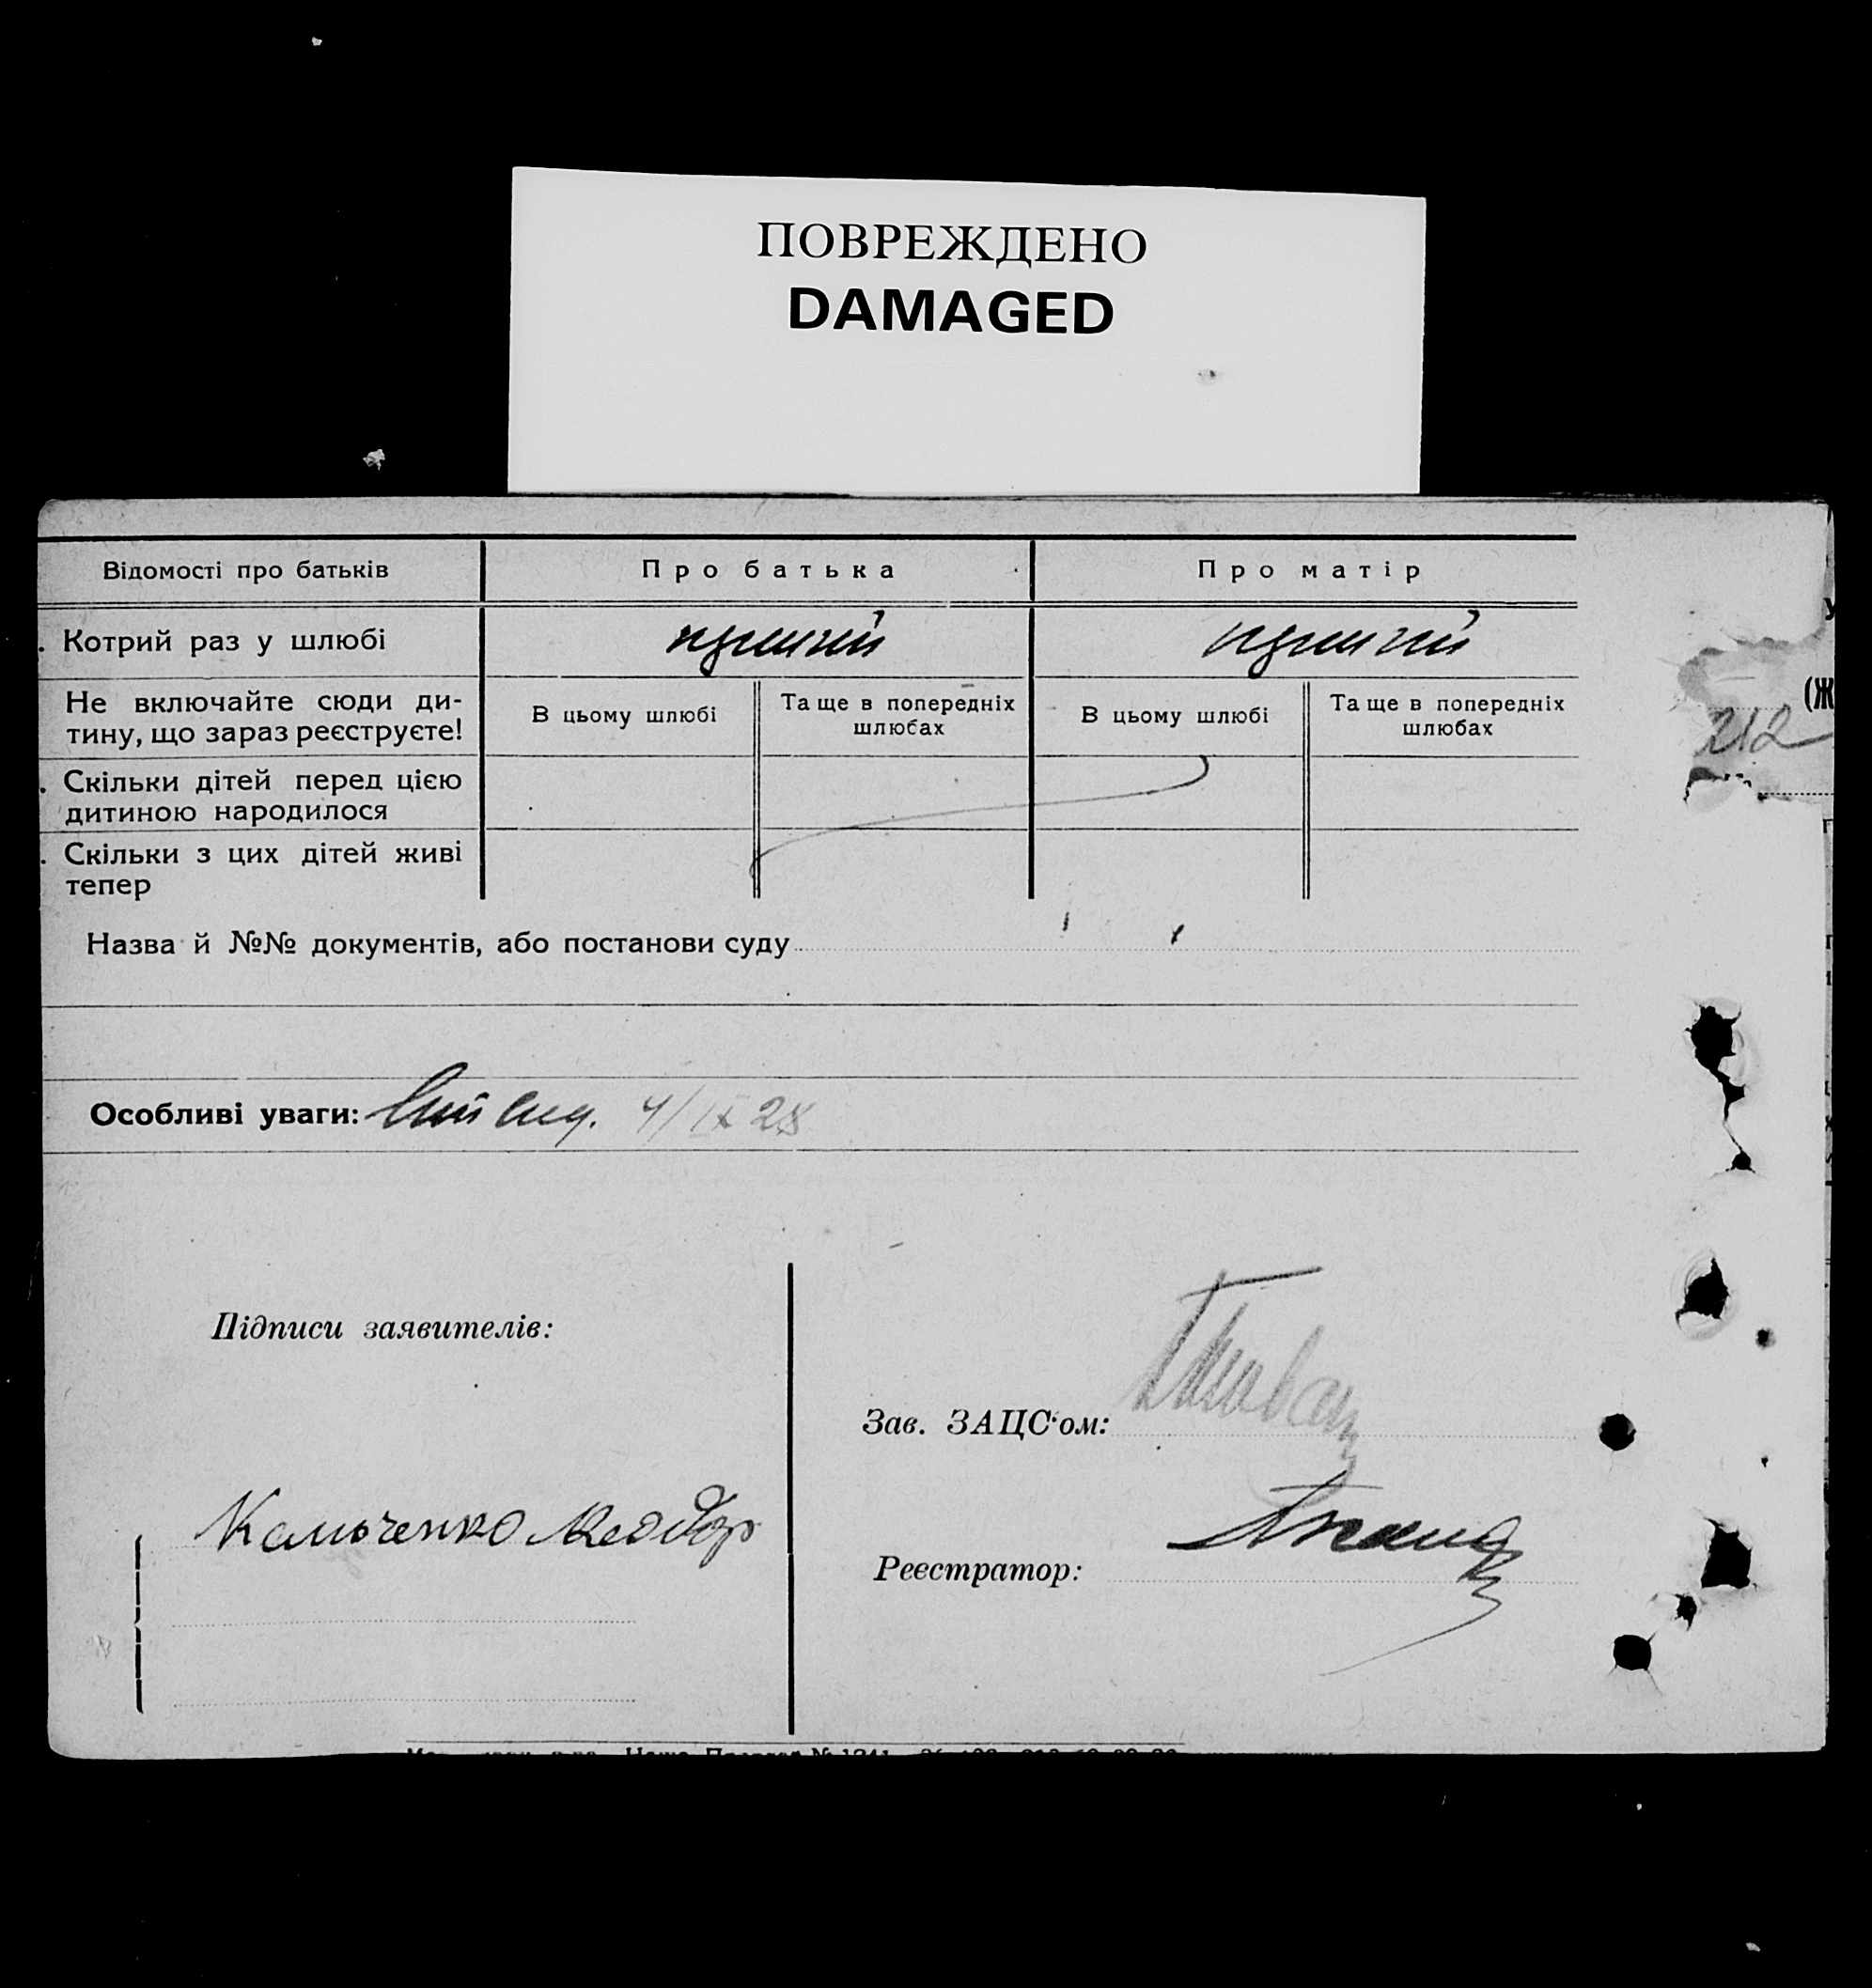 ПОВРЕЖДЕНО
DAMAGED
Відомості про батьків
Про батька
Про матір
. Котрий раз у шлюбі
перший
перший
Не включайте сюди ди-
тину, що зараз реєструєте!
В цьому шлюбі
Та ще в попередніх
шлюбах
В цьому шлюбі
Та ще в попередніх
шлюбах
. Скільки дітей перед цією
дитиною народилося
. Скільки з цих дітей живі
тепер
(Ж
212
Назва й №№ документів, або постанови суду
Особливі уваги: 4/IX 28
Підписи заявителів:
Зав. ЗАЦС'ом:
Реєстратор: